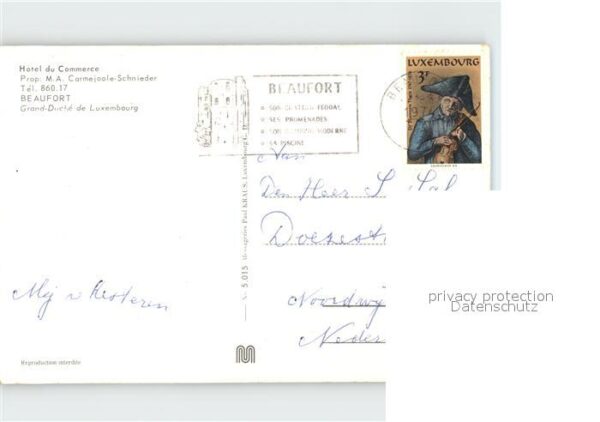 Hôtel du Commerce
Prop: M. A. Carmejoole-Schnieder
Tél. 860.17
BEAUFORT
Grand-Duché de Luxembourg
BEAUFORT
SON CHATEAU FEODAL
SES PROMENADES
SON CAMPING MODERNE
SA PISCINE
LUXEMBOURG
3F
Van
Den Heer S.
Noordwij
Neder
Mej v Kesteren
No 5.015 Messageries Paul KRAUS, Luxembourg
Reproduction interdite
privacy protection
Datenschutz